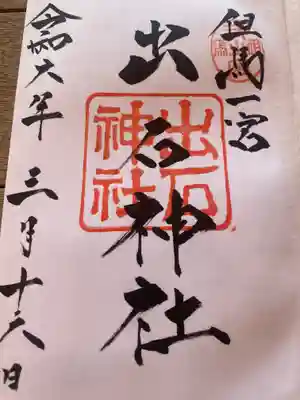 但馬一宮
出石神社
出石
神社
令和六年三月十六日